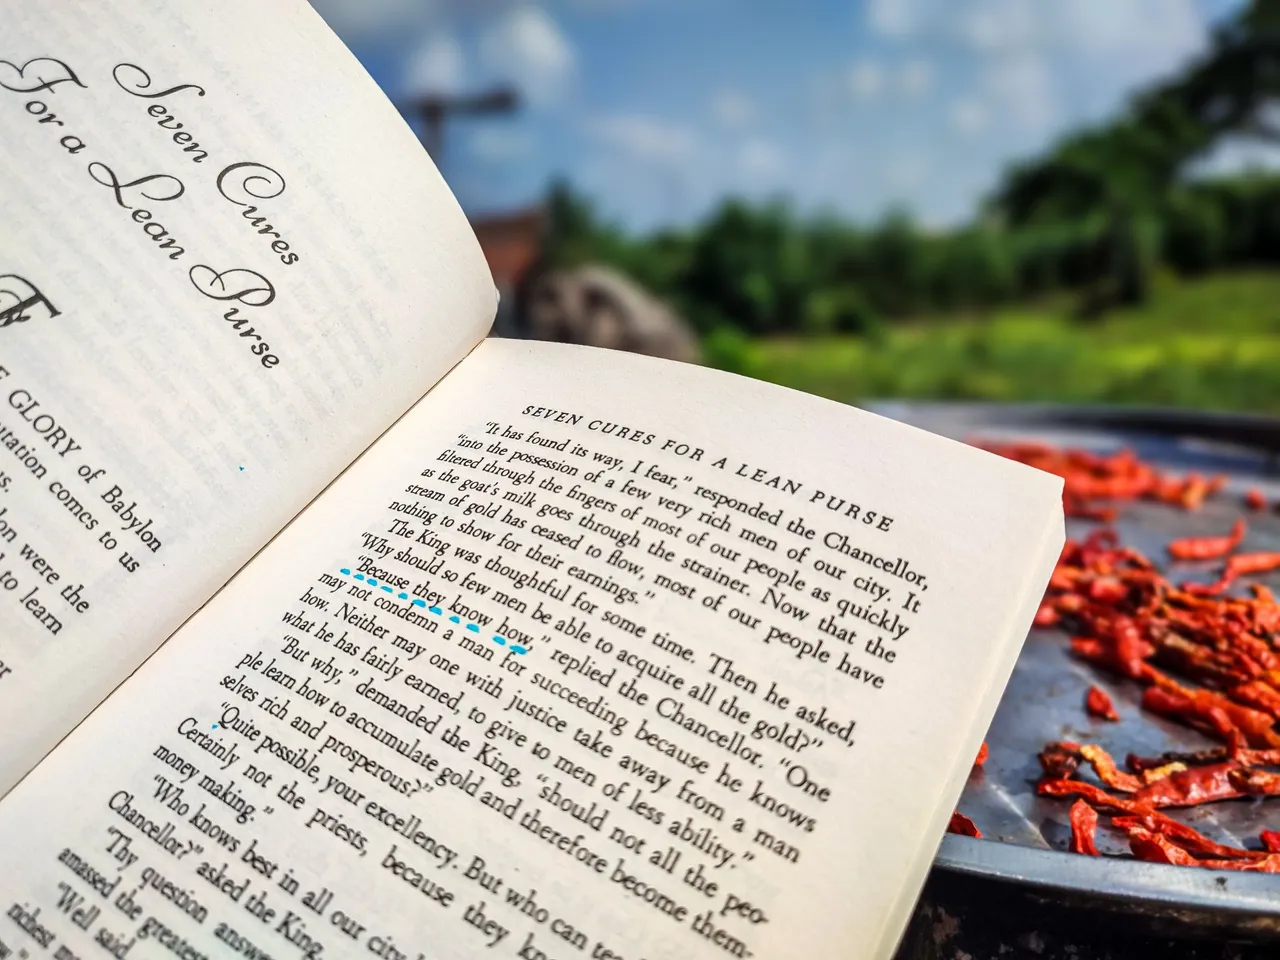 Seven Cures
For a Lean Purse
GLORY of Babylon
comes to us
were the
to learn
SEVEN CURES FOR A LEAN PURSE
“It has found its way, I fear,” responded the Chancellor,
“into the possession of a few very rich men of our city. It
filtered through the fingers of most of our people as quickly
as the goat's milk goes through the strainer. Now that the
stream of gold has ceased to flow, most of our people have
nothing to show for their earnings.”
The King was thoughtful for some time. Then he asked,
“Why should so few men be able to acquire all the gold?”
“Because they know how,” replied the Chancellor. “One
may not condemn a man for succeeding because he knows
how. Neither may one with justice take away from a man
what he has fairly earned, to give to men of less ability.”
“But why,” demanded the King, “should not all the peo-
ple learn how to accumulate gold and therefore become them-
selves rich and prosperous?”
“Quite possible, your excellency. But who can
Certainly not the priests, because they
money making.”
“Who knows best in all our city
Chancellor?” asked the King.
“Thy question
amassed the greatest
“Well said,
richest